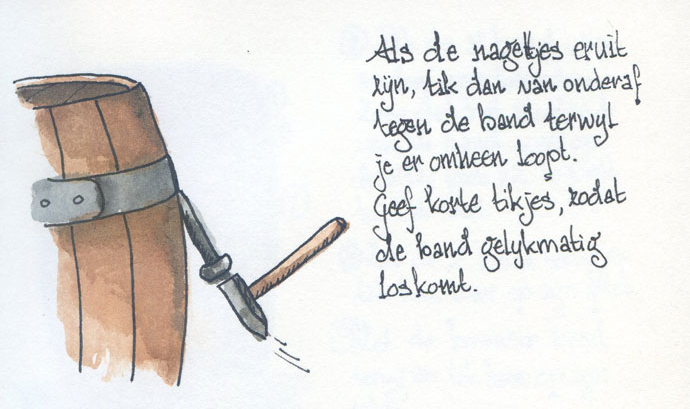 Als de nageltjes eruit
zijn, tik dan van onderaf
tegen de band terwyl
je er omheen loopt.
Geef korte tikjes, zodat
de band gelykmatig
loskomt.